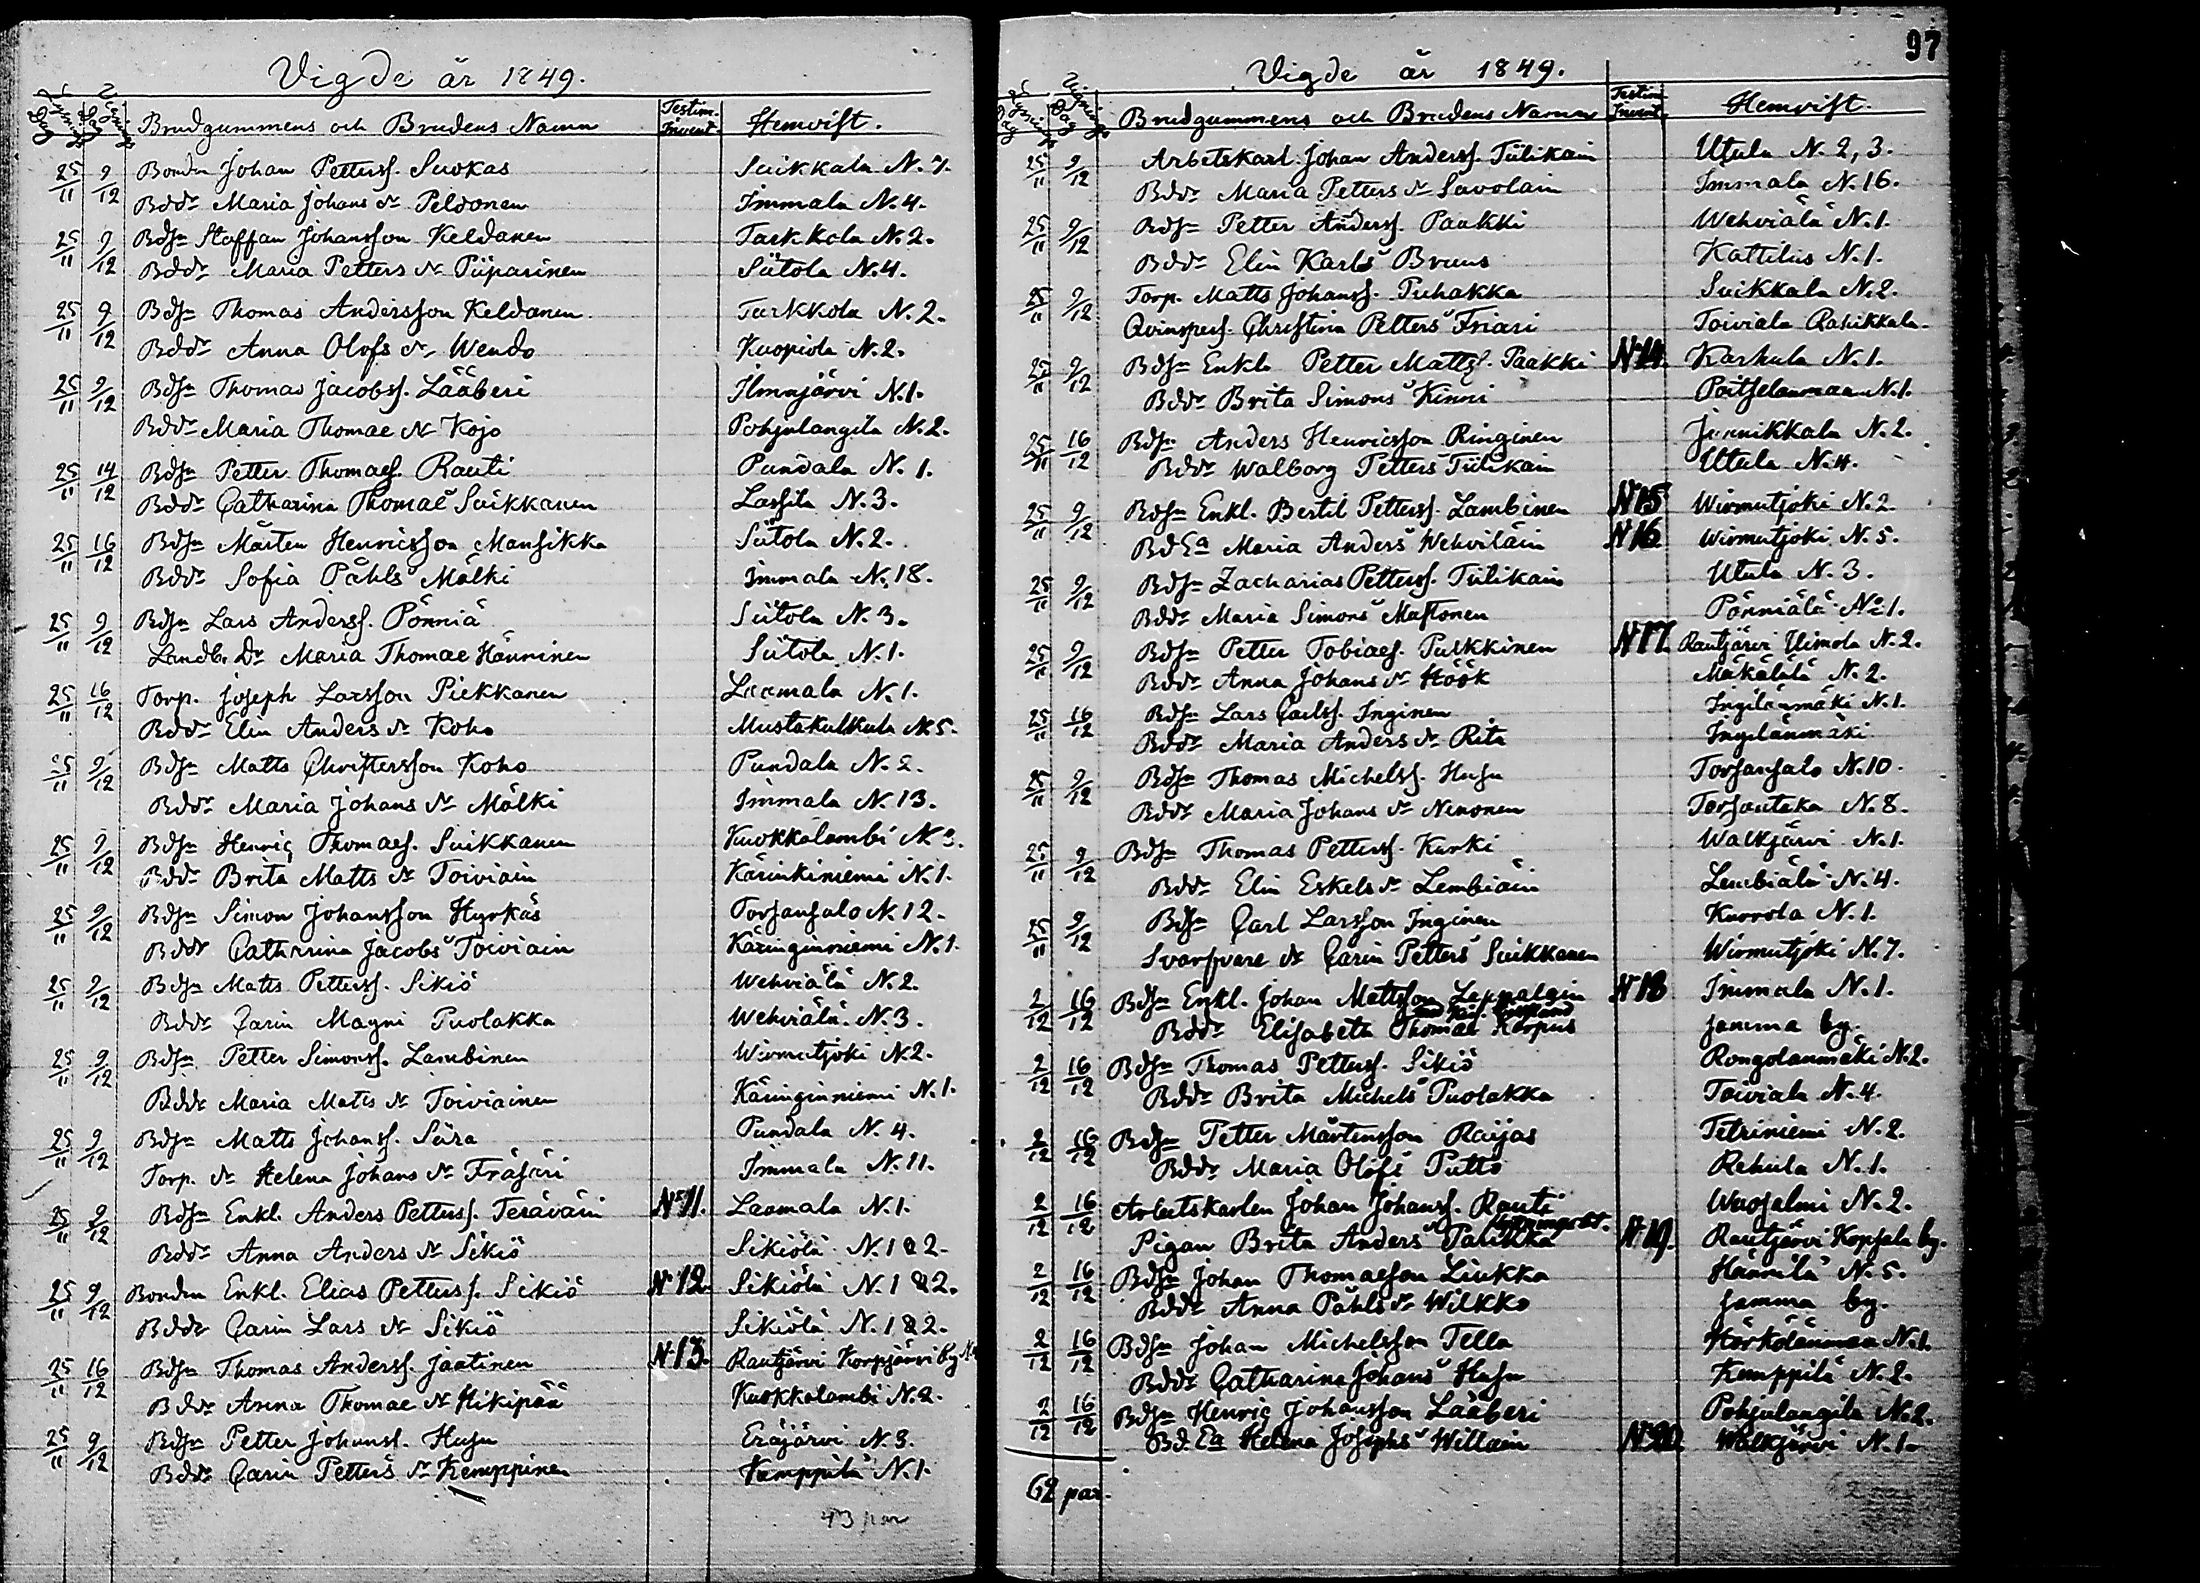 Vigde år 1849.
Lysnings Dag Vignings Dag Brudgummens och Brudens Namn Testim. Invent. Hemvist.
25/11 9/12 Bonden Johan Petterss. Suokas Suikkala N. 7.
Bddr Maria Johans dr Peldonen Immala N. 4.
25/11 9/12 Bdsn Staffan Johansson Keldanen Tarkkola N. 2.
Bddr Maria Petters dr Piiparinen Siitola N. 4.
25/11 9/12 Bdsn Thomas Andersson Keldanen Tarkkola N. 2.
Bddr Anna Olofs dr Wendo Kuopiola N. 2.
25/11 9/12 Bdsn Thomas Jacobss. Lääberi Ilmajärvi N. 1.
Bddr Maria Thomae dr Kojo Pohjalangila N. 2.
25/11 14/12 Bdsn Petter Thomaes. Rauti Pundala N. 1.
Bddr Catharina Thomae Suikkanen Lassila N. 3.
25/11 16/12 Bdsn Mårten Henricsson Mansikka Siitola N. 2.
Bddr Sofia Påhls Mälki Immala N. 18.
25/11 9/12 Bdsn Lars Anderss. Pönniä Siitola N. 3.
Landb. Dr Maria Thomae Hänninen Siitola N. 1.
25/11 16/12 Torp. Joseph Larsson Piekkanen Laamala N. 1.
Bddr Elin Anders dr Koho Mustakulkkula N. 5.
25/11 9/12 Bdsn Matts Christersson Koho Pundala N. 2.
Bddr Maria Johans dr Mölki Immala N. 13.
25/11 9/12 Bdsn Henric Thomaes. Suikkanen Kuokkalambi N. 3.
Bddr Brita Matts dr Toiviain Käringiniemi N. 1.
25/11 9/12 Bdsn Simon Johansson Hyrkäs Torsansalo N. 12.
Bddr Catharina Jacobs Toiviain Käringinniemi N. 1.
25/11 9/12 Bdsn Matts Petterss. Sikiö Wehviälä N. 2.
Bddr Carin Magni Puolakka Wehviälä N. 3.
25/11 9/12 Bdsn Petter Simonss. Lambinen Wirmutjoki N. 2.
Bddr Maria Matts dr Toiviainen Käringinniemi N. 1.
25/11 9/12 Bdsn Matts Johanss. Siira Pundala N. 4.
Torp. dr Helena Johans dr Träsäri Immala N. 11.
25/11 9/12 Bdsn Enkl. Anders Petterss. Teräväin N 11. Laamala N. 1.
Bddr Anna Anders dr Sikiö Sikiölä N. 1 & 2.
25/11 9/12 Bonden Enkl. Elias Petterss. Sikiö N. 12. Sikiölä N. 1 & 2.
Bddr Carin Lars dr Sikiö Sikiölä N. 1 & 2.
25/11 16/12 Bdsn Thomas Anderss. Jaatinen N. 13. Rautjärvi Korpjärvi by
Bddr Anna Thomae dr Hikipää Kuokkalambi N. 2.
25/11 9/12 Bdsn Petter Johanss. Husu Eräjärvi N. 3.
Bddr Carin Petters dr Kemppinen Kemppilä N. 1.
43 par
97
Vigde år 1849.
Lysnings Dag Vignings Dag Brudgummens och Brudens Namn Testim. Invent. Hemvist.
25/11 9/12 Arbetskarl. Johan Anderss. Tiilikain Utula N. 2, 3.
Bddr Maria Petters dr Savolain Immala N. 16.
25/11 9/12 Bdsn Petter Anderss. Paakki Wehviälä N. 1.
Bddr Elin Karls Bruns Kattilus N. 1.
25/11 9/12 Torp. Matts Johanss. Puhakka Suikkala N. 2.
Qvinspers. Christina Petters Friari Toiviala Rahikkala.
25/11 9/12 Bdsn Enkl. Petter Mattss. Paakki N 14. Karhula N. 1.
Bddr Brita Simons Kinni Poitselanmaa N. 1.
25/11 16/12 Bdsn Anders Henricsson Ringinen Junnikkala N. 2.
Bddr Walborg Petters Tiilikain Utula N. 4.
25/11 9/12 Bdsn Enkl. Bertil Petterss. Lambinen N 15 Wirmutjoki N. 2
Bd Ea Maria Anders Wehviläin N 16. Wirmutjoki N. 5.
25/11 9/12 Bdsn Zacharias Petterss. Tiilikain Utula N. 3.
Bddr Maria Simons Mastonen Pönniälä N. 1.
25/11 9/12 Bdsn Petter Tobiaes. Pulkkinen N 17. Rautjärvi Uimola N. 2.
Bddr Anna Johans dr Höök Mäkälälä N. 2.
25/11 16/12 Bdsn Lars Carlss. Inginen Ingilänmäki N. 1.
Bddr Maria Anders dr Rita Ingilänmäki
25/11 9/12 Bdsn Thomas Michelss. Husu Torsansalo N. 10.
Bddr Maria Johans dr Ninonen Torsantaka N. 8.
25/11 9/12 Bdsn Thomas Petterss. Kurki Walkjärvi N. 1.
Bddr Elin Eskels dr Lembiäin Lembiälä N. 4.
25/11 9/12 Bdsn Carl Larsson Inginen Kurrola N. 1.
Svarfvare dr Carin Petters Suikkanen Wirmutjoki N. 7.
2/12 16/12 Bdsn Enkl. Johan Mattsson Leppalain N 18 Immala N. 1.
Bddr Elisabeta Thomae Korpus samma by.
2/12 16/12 Bdsn Thomas Petterss. Sikiö Rongolanmäki N. 2.
Bddr Brita Michels Puolakka Toiviala N. 4.
2/12 16/12 Bdsn Petter Mårtensson Raijas Tetriniemi N. 2.
Bddr Maria Olofs Putto Rehula N. 1.
2/12 16/12 Arbetskarlen Johan Johanss. Rauti Wuosalmi N. 2.
Pigan Brita Anders Parikka N 19. Rautjärvi Kopsala by.
2/12 16/12 Bdsn Johan Thomaesson Liukko Häärilä N. 5.
Bddr Anna Påhls dr Wilkko samma by.
2/12 16/12 Bdsn Johan Michelsson Tella Hörkölänmaa N. 1.
Bddr Catharina Johans Husu Kemppilä N. 2.
2/12 16/12 Bdsn Henric Johansson Lääberi Pohjalangila N. 2.
Bd. Ea Helena Josephs Willain N 20 Walkjärvi N. 1.
62 par.